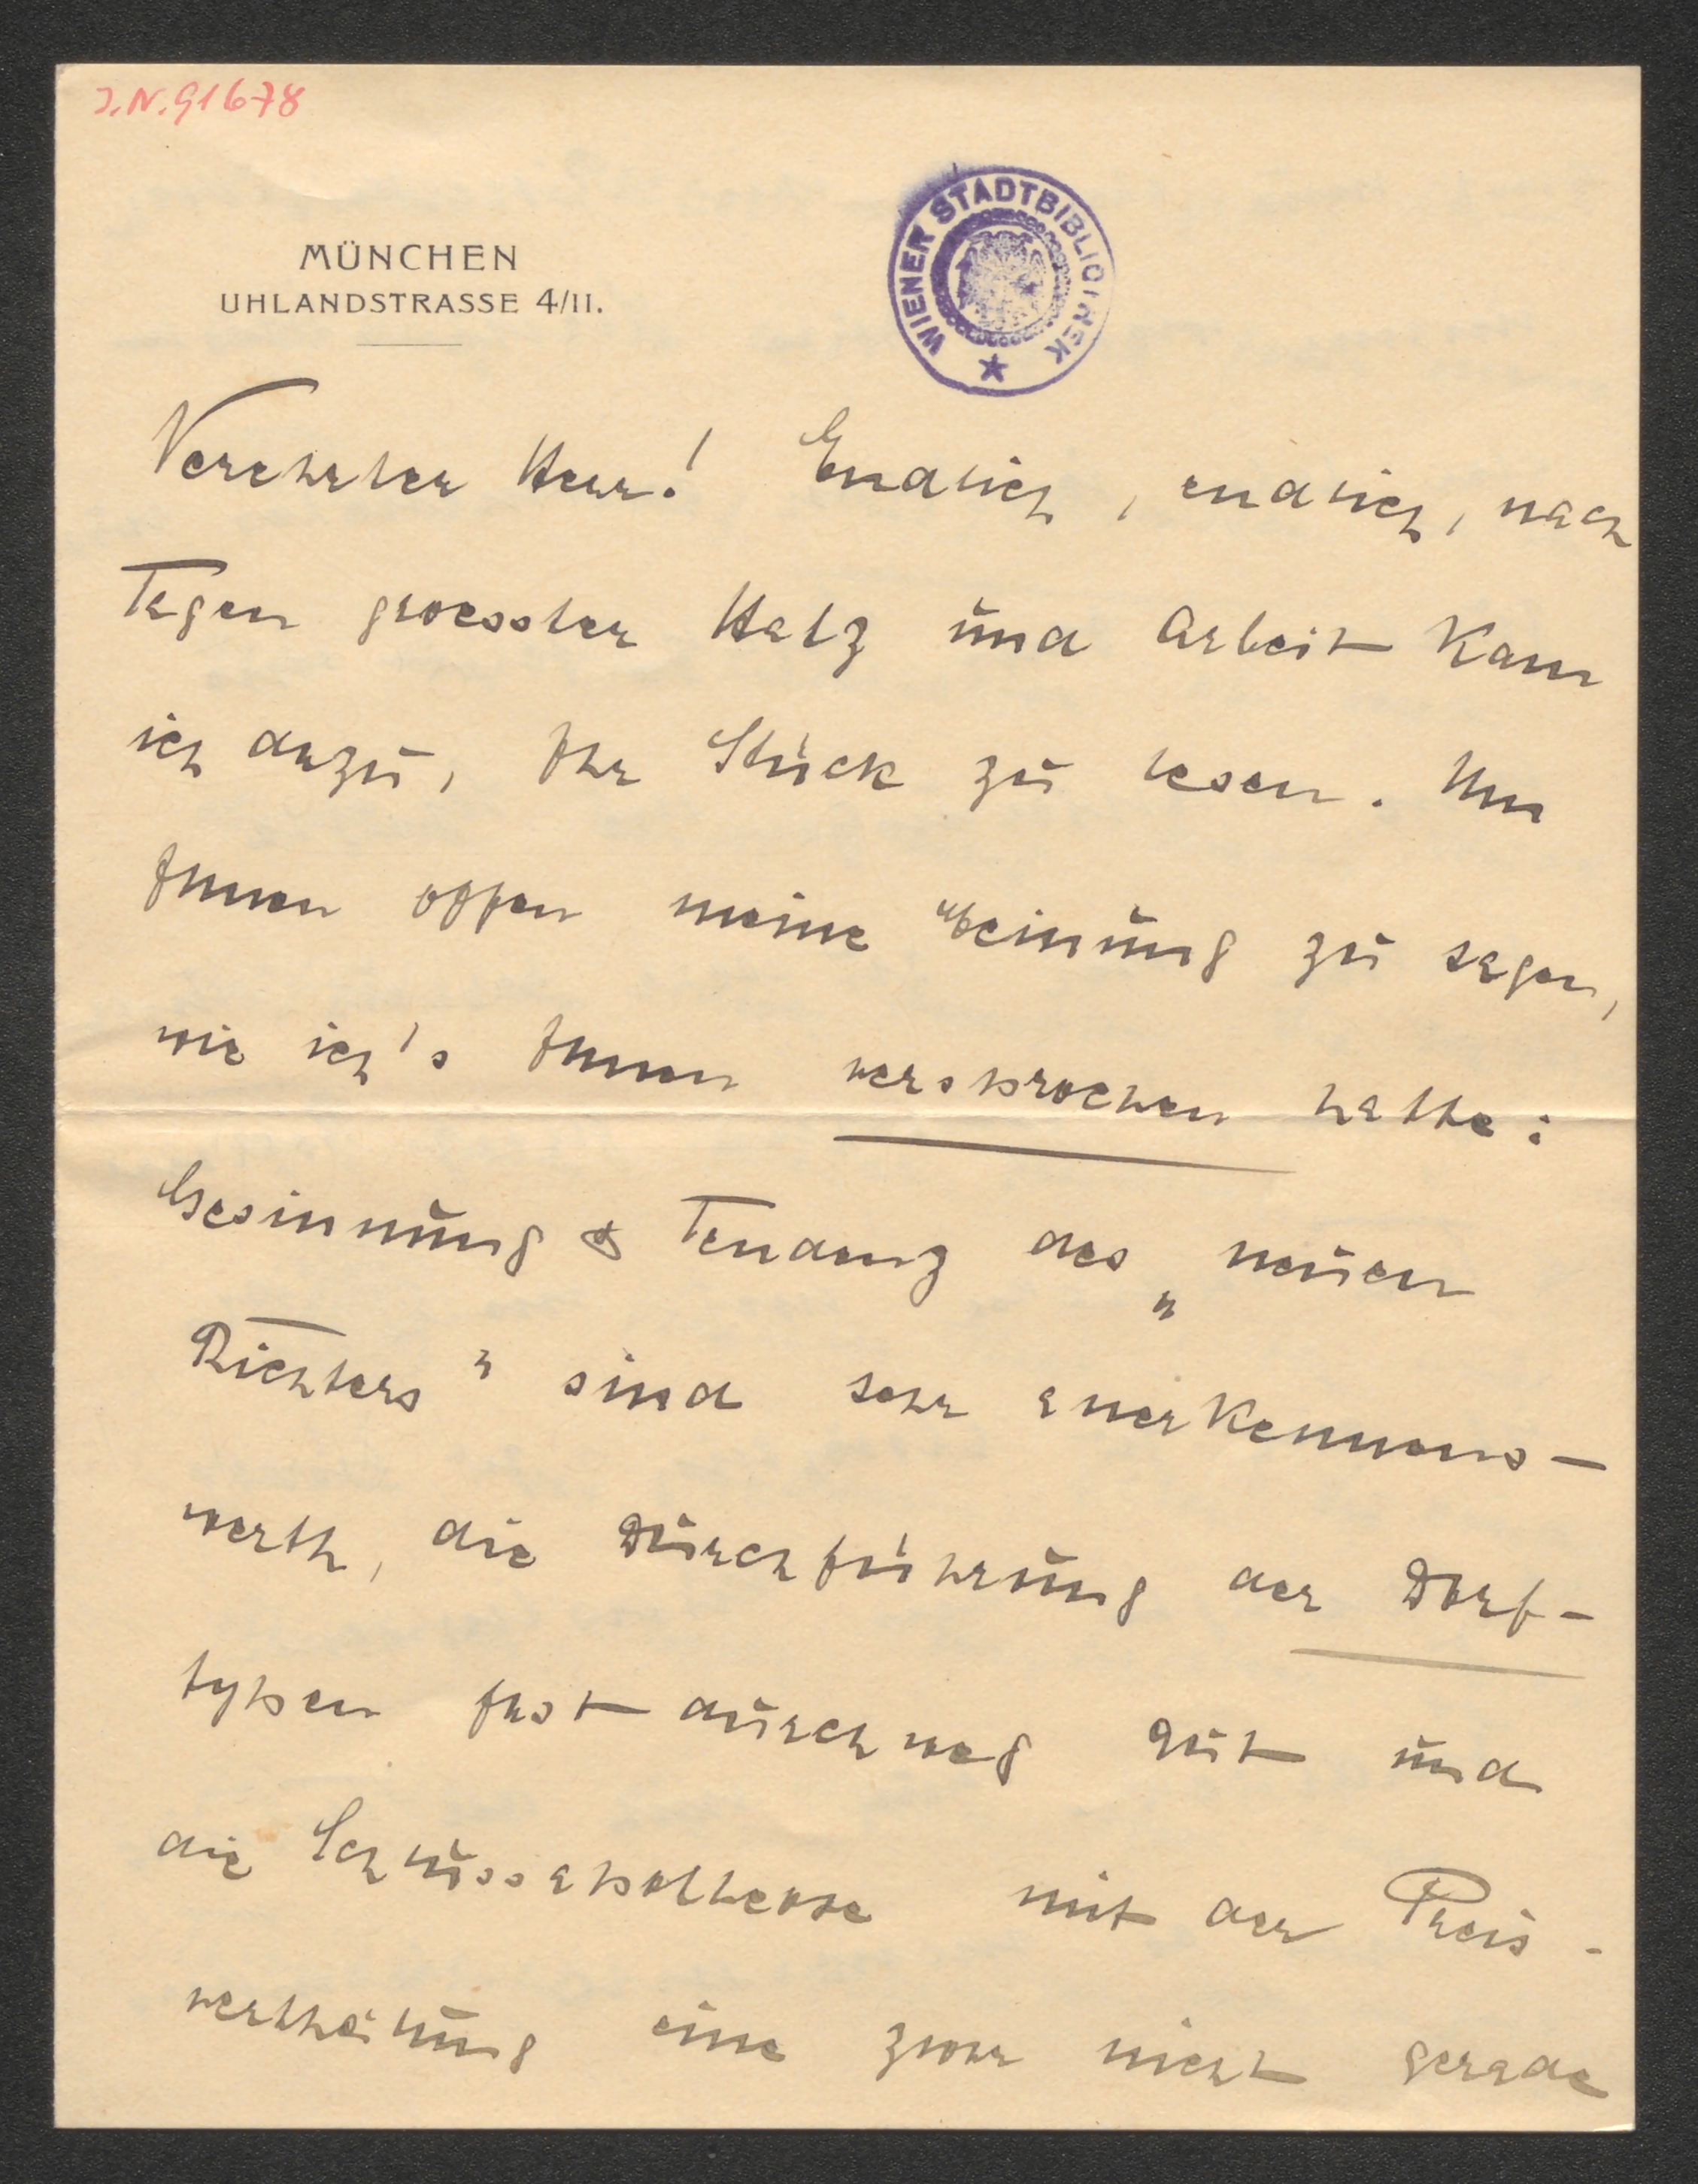 J.N. 91678
WIENER STADTBIBLIOTHEK
MÜNCHEN
UHLANDSTRASSE 4/II.
Verehrter Herr! Endlich, endlich, nach
Tagen groesster Hatz und Arbeit kam
ich dazu, Ihr Stück zu lesen. Um
Ihnen offen meine Meinung zu sagen,
wie ich's Ihnen versprochen hatte:
Gesinnung & Tendenz des „neuen
Richters" sind sehr anerkennens-
werth, die Durchführung der Dorf-
typen fast durchweg gut und
die Schlussapotheose mit der Preis-
vertheilung eine zwar nicht gerade